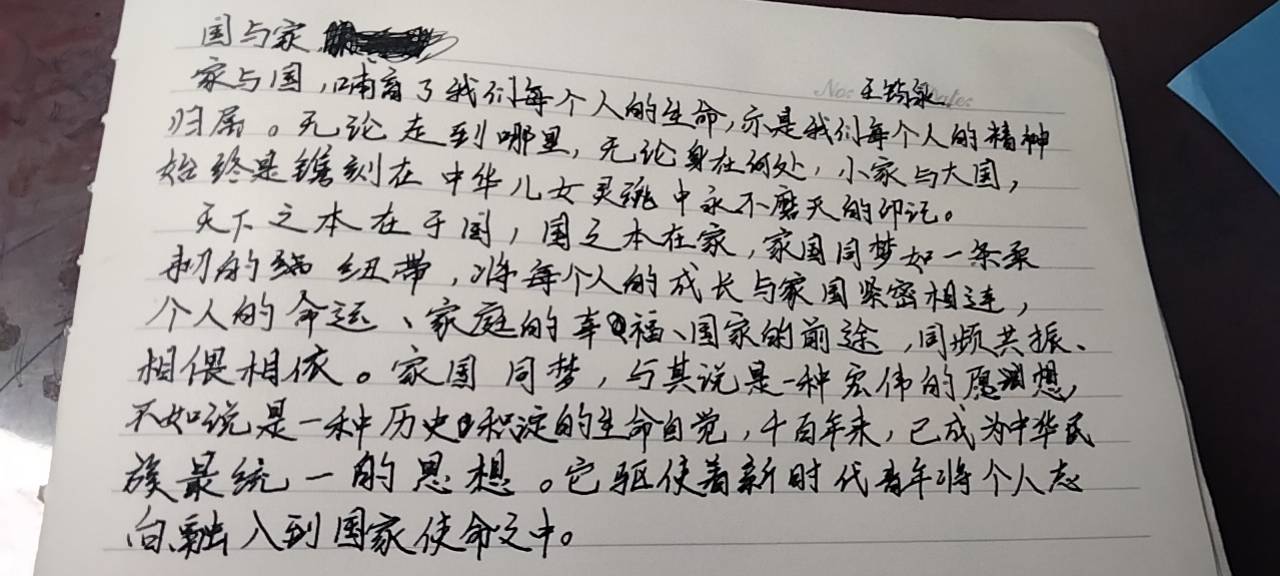 国与家
No: 王 Date:
家与国,哺育了我们每个人的生命,亦是我们每个人的精神
归属。无论走到哪里,无论身在何处,小家与大国,
始终是镌刻在中华儿女灵魂中永不磨灭的印记。
天下之本在于国,国之本在家,家国同梦如一条柔
韧的纽带,将每个人的成长与家国紧密相连,
个人的命运、家庭的幸福、国家的前途,同频共振、
相偎相依。家国同梦,与其说是一种宏伟的愿想,
不如说是一种历史积淀的生命自觉,千百年来,已成为中华民
族最统一的思想。它驱使着新时代青年将个人志
向融入到国家使命之中。